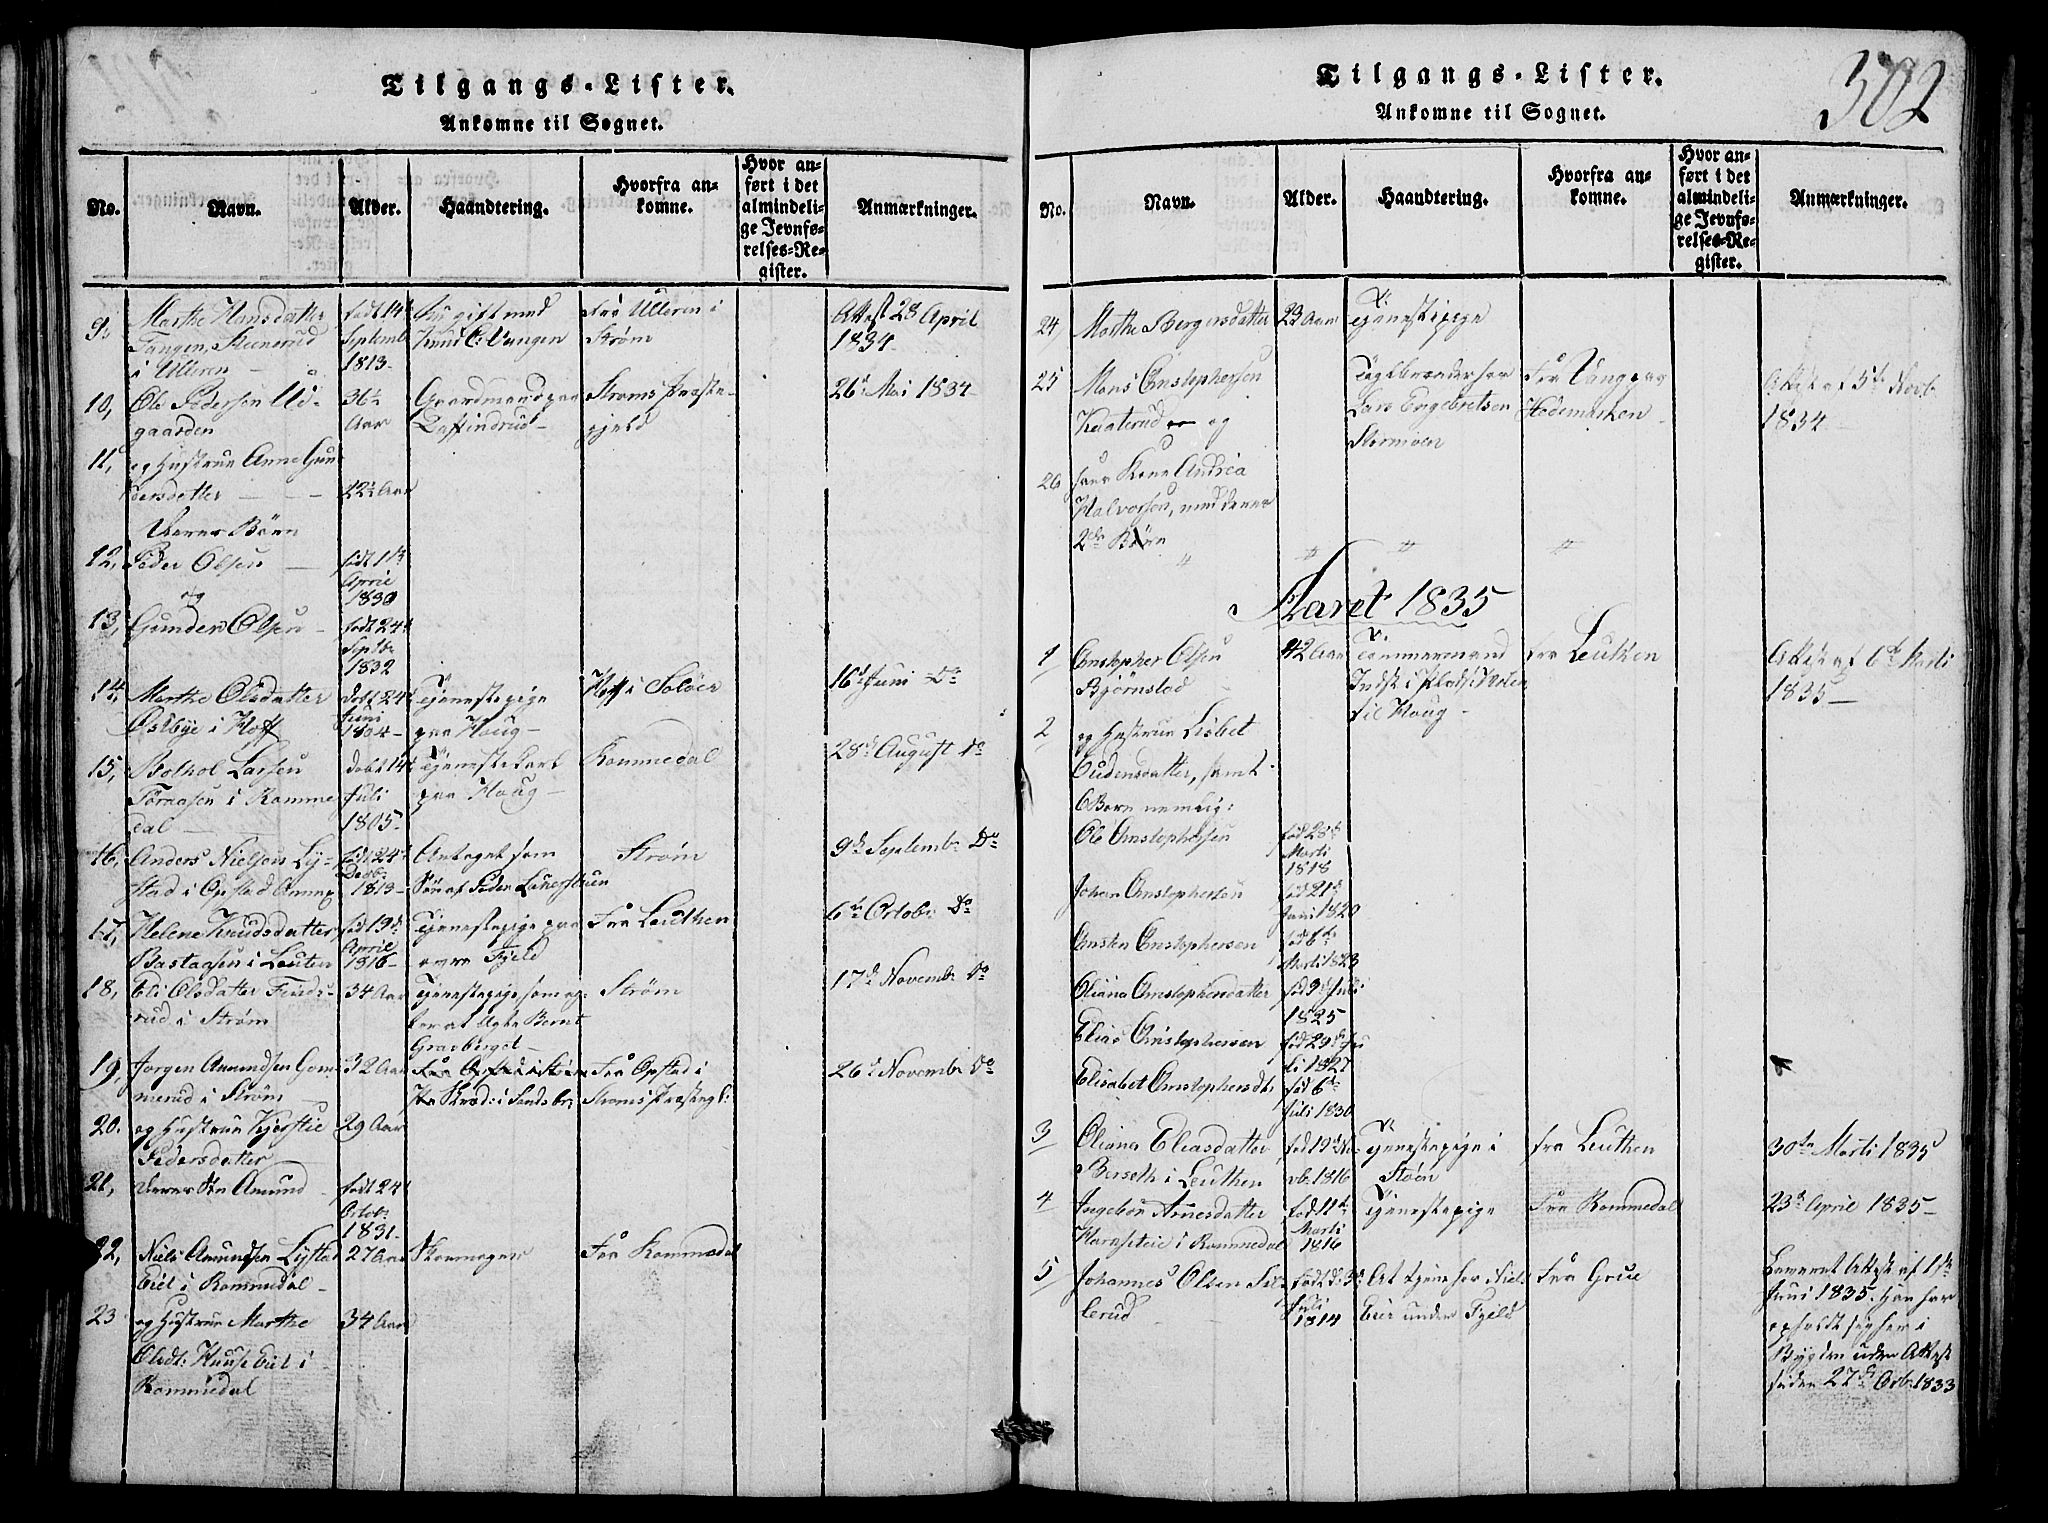 Tilgangs-Lister.
Ankomne til Sognet.
No.
Navn.
Alder.
Haandtering.
Hvorfra an-
komne.
Hvor an-
ført i det
almindeli-
ge Jevnfø-
relses-Re-
gister.
Anmærkninger.
9,
Marthe Hansdatter
Tangen, Steinerud
i Ulleren
født 14de
Septemb
1813-
gift med
Knud
Fra Ulleren i
Strøm
Attest 28 April
1834-
10,
Ole Pedersen
gaarden
36½
Aar
Gaardmand paa
Strøms Præste-
gjeld
26d Mai 1834-
11,
og Hustrue Anne Gun
dersdatter
Aar
deres Børn
12,
Peder Olsen
og
født
April
1830
13,
Gunder Olsen
født 24d
Septbr
1832
14,
Marthe Olsdatter
Østbye i Hoff
døbt 24d
Juni
1804-
Tjenestepige
paa Haug-
Hoff i Soløer
16d Juni - Do
15,
Bothol Larsen
i Romme
dal
døbt 14d
Juli
1805-
Tjenestekarl
paa Haug-
Rommedal
28d August Do
16,
Anders Nielsen Ly-
stad i Opstad Annex
født 24d
Decbr
1813-
Antaget som
Søn af Peder
Strøm
9de Septembr Do
17,
Helene Knudsdatter
Bastaasen i Leuten
født 19de
April
1816-
Tjenestepige paa
øvre Fjeld
Fra Leuthen
6te Octobr Do
18,
Eli Olsdatter Finds-
rud i Strøm
34 Aar
Tjenestepige som ag-
ter at ægte Bernt
Gravberget-
Strøm
17d Novembr Do
19,
Jørgen Amundsen Gom-
merud i Strøm
32 Aar
Fra Opstad i
Strøms Præstegl:
26d Novembr Do
20.
og Hustrue Kjerstie
Pedersdatter
29 Aar
21,
deres Søn Amund
født 24d
Octob:
1831-
22,
Niels Amundsen Lyste
Eiet i Rommedal-
27 Aar
Skomager
Fra Rommedal
23
og Hustrue Marthe
Olsdt: Huuse Eiet i
Rommedal
34 Aar
302
Tilgangs-Lister.
Ankomne til Sognet.
No.
Navn.
Alder.
Haandtering.
Hvorfra an-
komne.
Hvor an-
ført i det
almindeli-
ge Jevnfø-
relses-Re-
gister.
Anmærkninger.
24,
Marthe Bergersdatter
23 Aar
Tjenestepige
25
Mons Christophersen
Kaaterud og
Teglbrænder hos
Lars Engebretsen
Stormoen
Fra Vang paa
Hedemarken
Attest af 5te Novb:
1834-
26
hans Kone Andrea
Halvorsen, med deres
2de Børn
Aaret 1835
1
Christopher Olsen
Bjørnstad
42 Aar
Tømmermand
Indst i Pladsen
til Haug-
fra Leuthen
Attest af 6te Marti
1835-
2
og Hustrue Lisbet
Oudensdatter, samt
6 Børn nemlig:
Ole Christophersen
fød 28d
Marti
1818
Johan Christophersen
fød 21d
Juni 1820
Christen Christophersen
fød 6te
Marti 1823
Oliana Christophersdatter
fød 9d Juli
1825
Elias Christophersen
fød 29d Ju
li 1827
Elisabet Christophersdt:
fød 6d
Juli 1830
3
Oliana Eliasdatter
Berseth i Leuthen
fød 19d No-
vb. 1816
Tjenestepige i
Støen
fra Leuthen
30te Marti 1835
4
Ingebor Arnesdatter
i Rommedal
fød 11te
Marti
1816
Tjenestepige
Fra Rommedal
23d April 1835-
5
Johannes Olsen Sil-
lerud
født d. 3d
Juli
1814
At tjene hos Niels
Eier under Fjeld
Fra Grue
Leveret Attest af 1ste
Juni 1835. Han har
opholdt sig her i
Bygden uden Attest
siden 27d Octb. 1833